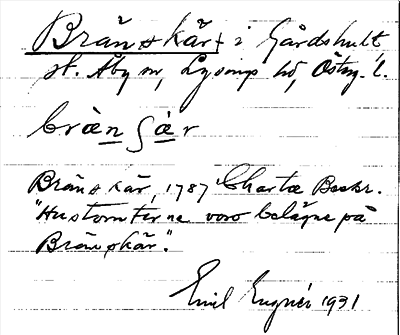 Bränskär i Gårdshult
st. Åby sn, Lysings hd, Östg. l.
bràn ʃæ̀r
Bränskär, 1787 Charta Beskr.
"Hustomterna voro belägna på
Bränskär."
Emil Engnér 1931